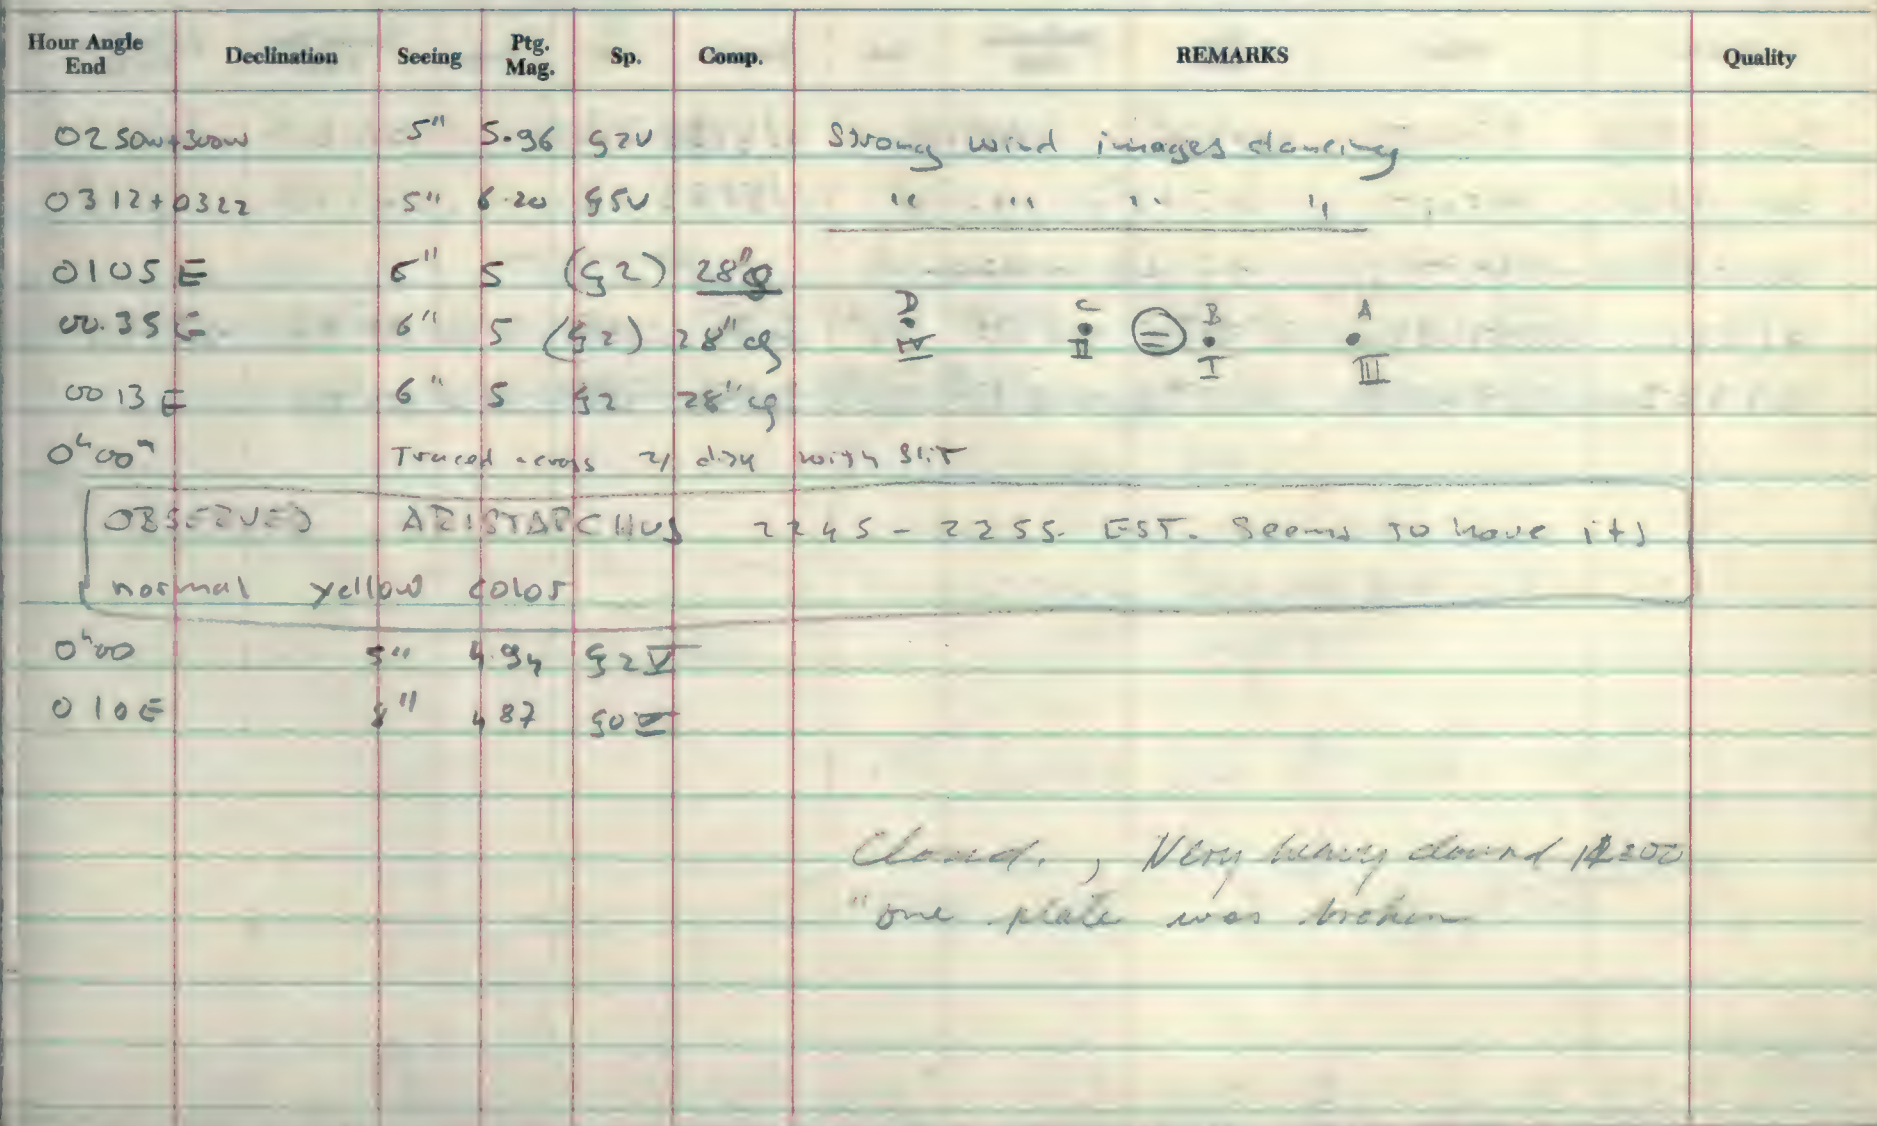 Hour Angle End Declination Seeing Ptg. Mag. Sp. Comp. REMARKS Quality
0250w+300w 5" 5.96 G2V Strong wind images dancing
0312+0322 5" 6.20 G5V " " " "
0105 E 6" 5 (G2) 28"
00.35 E 6" 5 (G2) 28" cg
D C B A
IV II I III
0013 E 6" 5 G2 28" cg
0h00m Traced across ♃ disk with slit
OBSERVED ARISTARCHUS 2245 - 2255 EST. Seems to have its
normal yellow color
0h00 5" 4.94 G2V
010E 8" 4.87 G0V
Cloud., Very heavy cloud
"one plate was broken